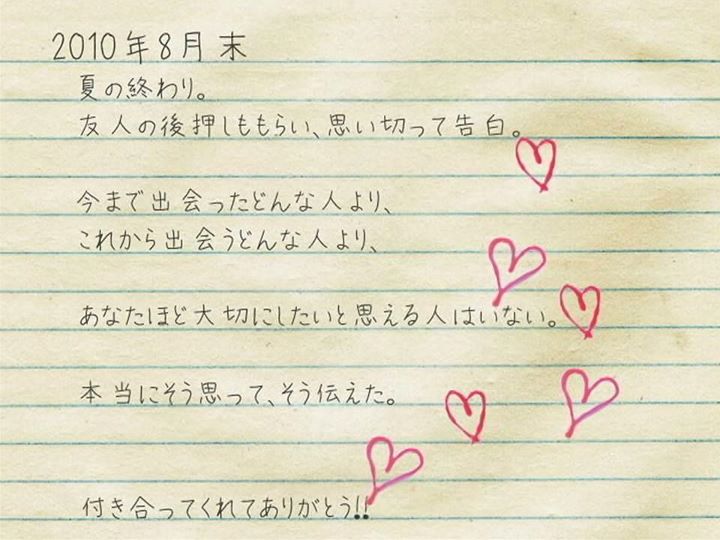 2010年8月末
夏の終わり。
友人の後押しももらい、思い切って告白。
今まで出会ったどんな人より、
これから出会うどんな人より、
あなたほど大切にしたいと思える人はいない。
本当にそう思って、そう伝えた。
付き合ってくれてありがとう!!